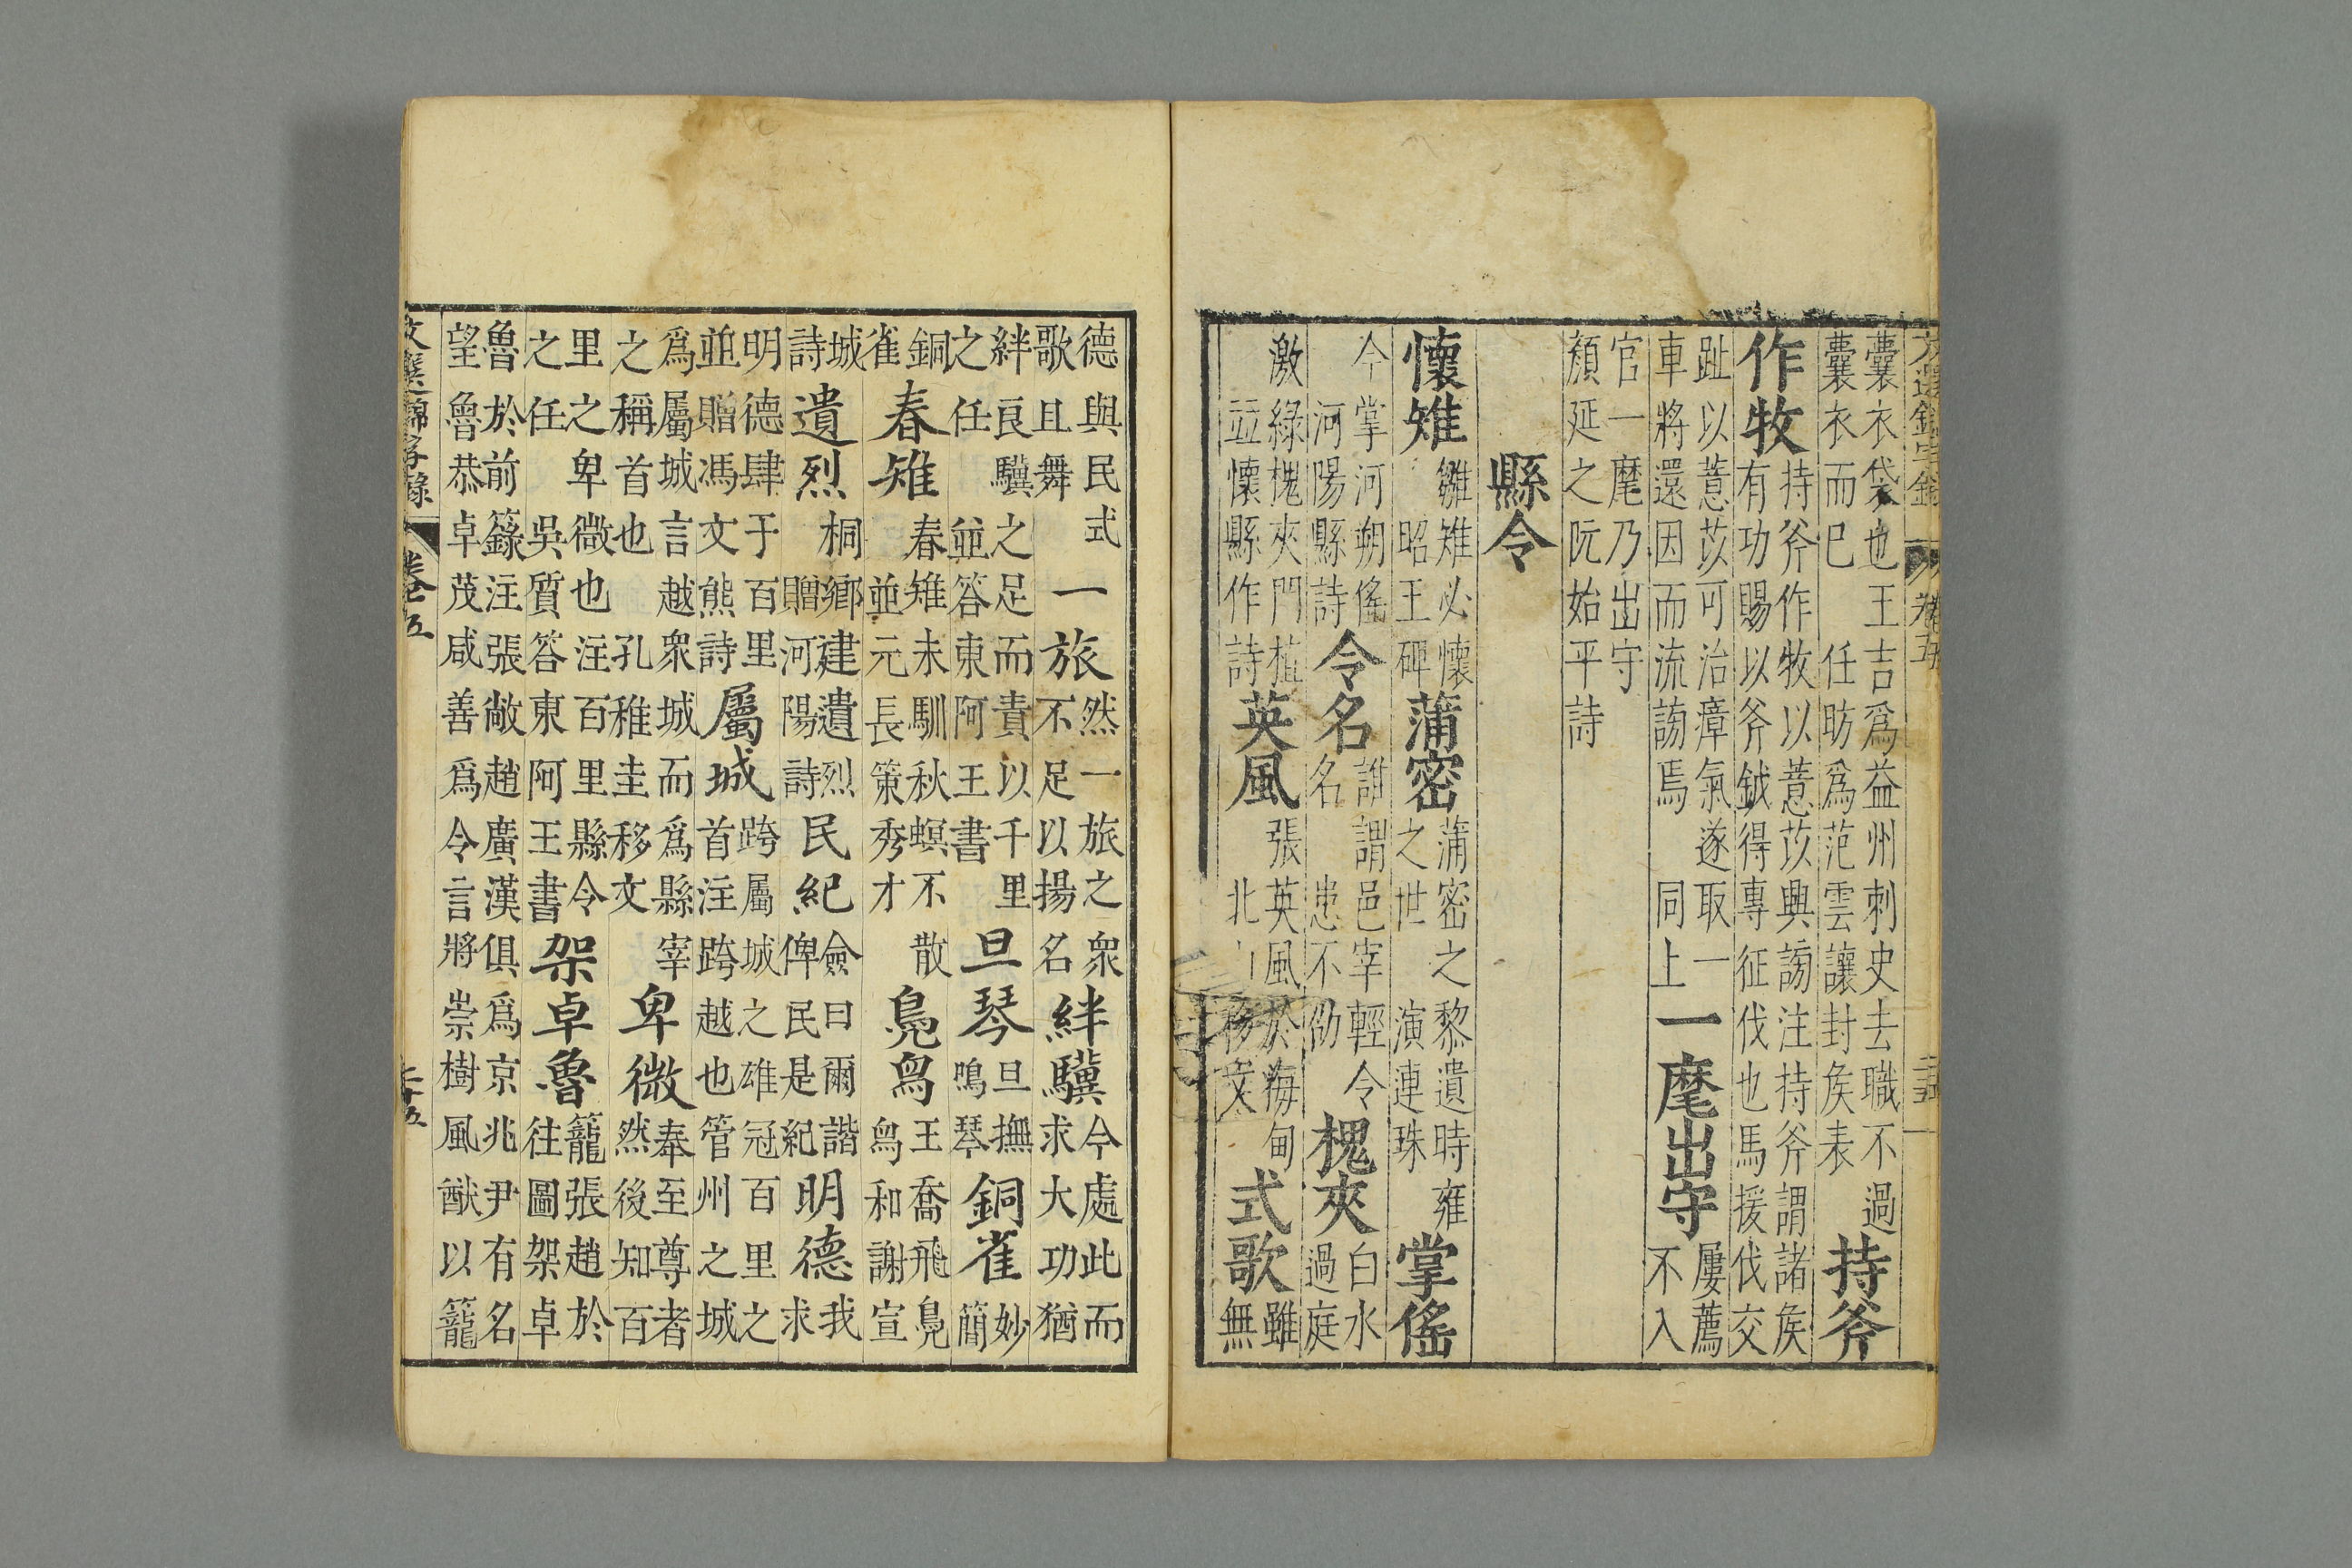 文選錦字錄 卷五 二十五
囊衣袋也王吉爲益州刺史去職不過
囊衣而巳 任昉爲范雲讓封矦表
持斧
作牧
持斧作牧以薏苡興謗注持斧謂諸矦
有功賜以斧鉞得專征伐也馬援伐交
趾以薏苡可治瘴氣遂取一
車將還因而流謗焉 同上
一麾出守
屢薦
不入
官一麾乃出守
顏延之阮始平詩
縣令
懷雉
雛雉必懷
昭王碑
蒲密
蒲密之黎遺時雍
之世 演連珠
掌傜
今掌河朔傜
河陽縣詩
令名
誰謂邑宰輕令
名患不劭
槐夾
白水
過庭
激綠槐夾門植
並懷縣作詩
英風
張英風於海甸
北山移文
式歌
雖
無
德與民式
歌且舞
一旅
然一旅之衆
不足以揚名
絆驥
今處此而
求大功猶
絆良驥之足而責以千里
之任 並答東阿王書
旦琴
旦撫
鳴琴
銅雀
妙
簡
銅
雀
春雉
春雉未馴秋螟不散
並元長策秀才
鳧舄
王喬飛鳧
舄和謝宣
城
詩
遺烈
桐鄉建遺烈
贈河陽詩
民紀
僉曰爾諧
俾民是紀
明德
我
求
明德肆于百里
並贈馮文熊詩
屬城
跨屬城之雄冠百里之
首注跨越也管州之城
爲屬城言越衆城而爲縣宰
之稱首也 孔稚圭移文
卑微
奉至尊者
然後知百
里之卑微也注百里縣令
之任 吳質答東阿王書
架卓魯
籠張趙於
往圖架卓
魯於前籙注張敞趙廣漢俱爲京兆尹有名
望魯恭卓茂咸善爲令言將崇樹風猷以籠
文選錦字錄 卷五 二十五